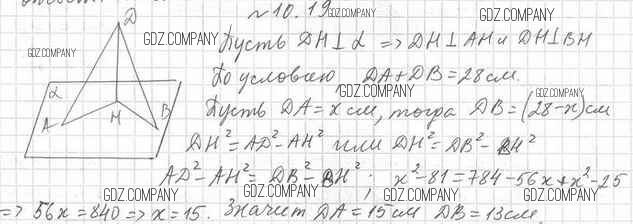 №10.19
GDZ.COMPANY
GDZ.COMPANY
GDZ.COMPANY
GDZ.COMPANY
D
Пусть DH⊥α => DH⊥AH и DH⊥BH
По условию DA+DB=28см.
α
GDZ.COMPANY
GDZ.COMPANY
Пусть DA=x см, тогда DB=(28-x)см
A
H
B
DH²=AD²-AH² или DH²=DB²-BH²
AD²-AH²=DB²-BH²; x²-81=784-56x+x²-25
GDZ.COMPANY
GDZ.COMPANY
GDZ.COMPANY
=> 56x=840 => x=15. Значит DA=15см DB=13см.